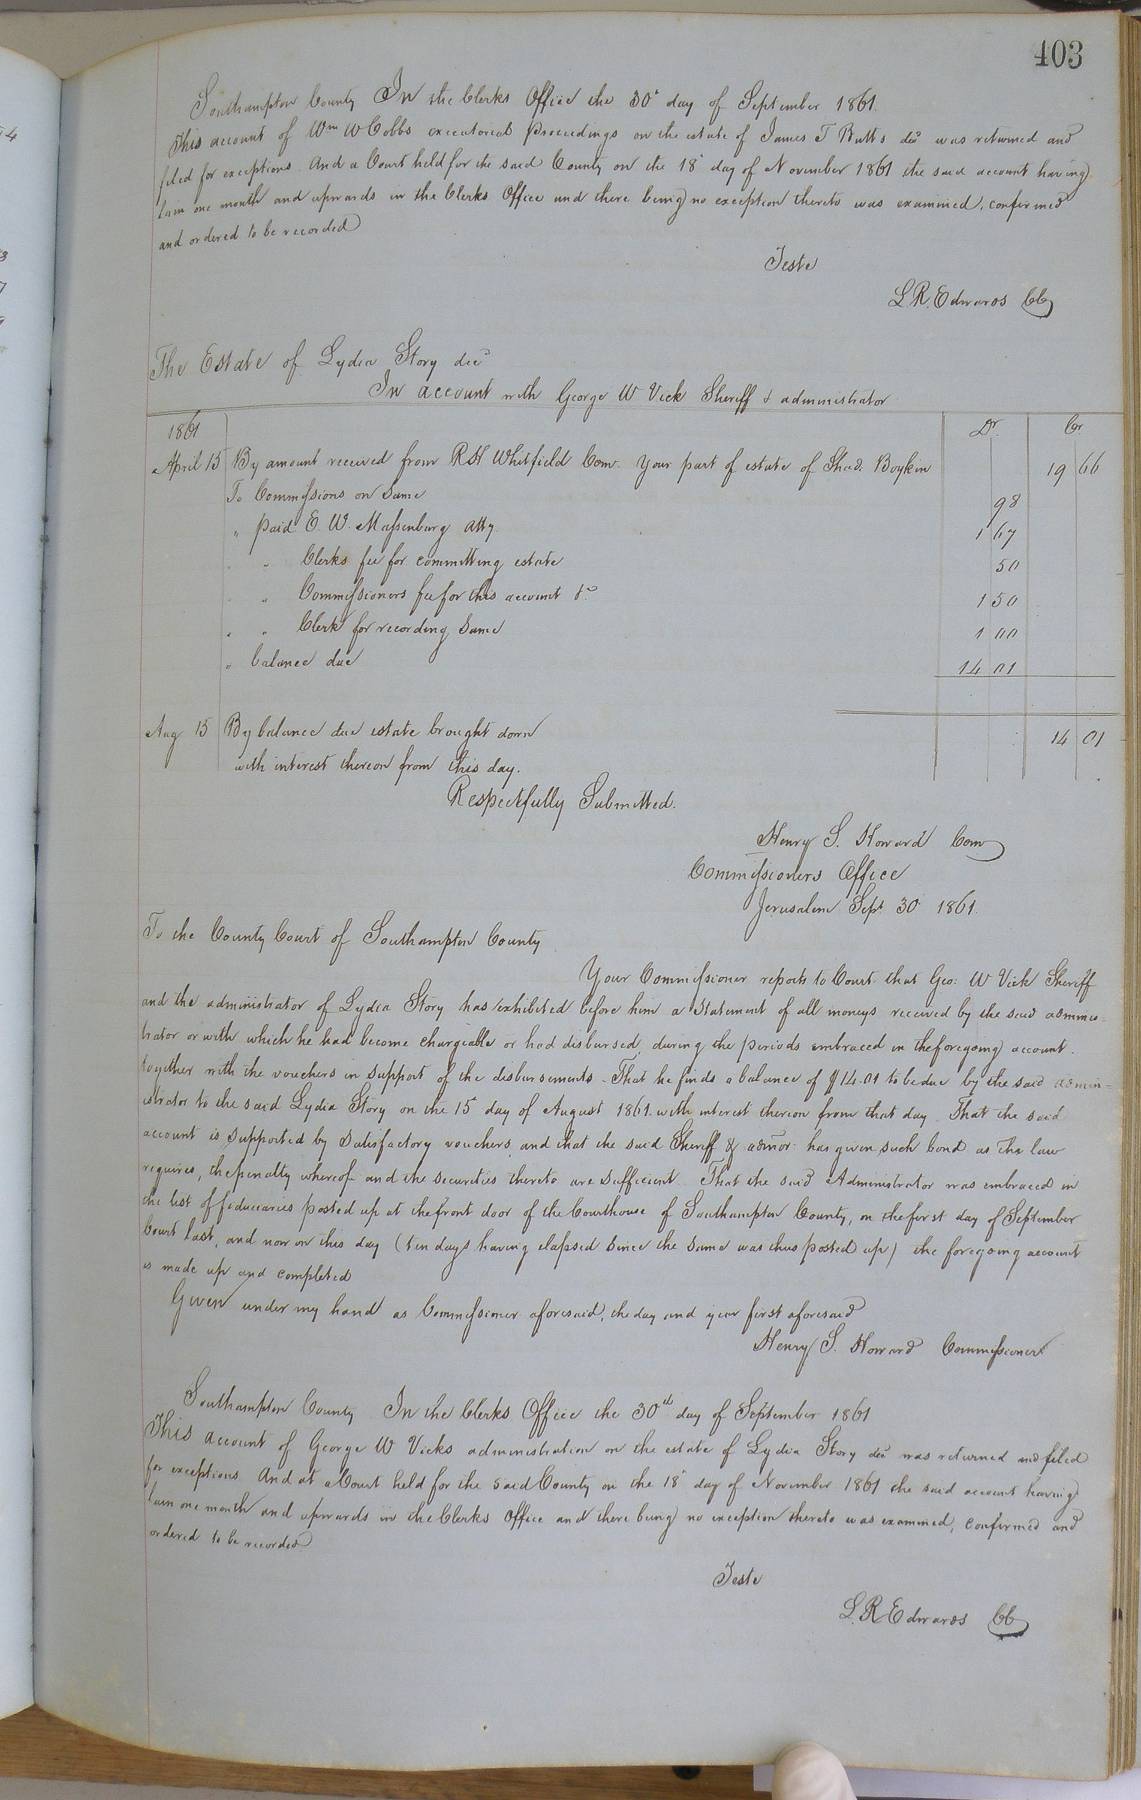 403
Southampton County In the Clerks Office the 30th day of September 1861.
This account of Wm W Cobbs executorial proceedings on the estate of James T Butts decd was returned and
filed for exceptions. And a Court held for the said County on the 18th day of November 1861 the said account having
lain one month and upwards in the Clerks Office and there being no exception thereto was examined, confirmed
and ordered to be recorded
Teste
L.R. Edwards CC
The Estate of Lydia Story decd
In account with George W Vick Sheriff & administrator
1861 Dr. Cr
April 15 By amount received from RH Whitfield Com. Your part of estate of Shad. Boykin 19 66
To Commissions on Same 98
" paid E. W. Massenburg atty. 1 67
" " Clerks fee for committing estate 50
" " Commissioners fee for this account &c 1 50
" " Clerk for recording Same 1 00
" balance due 14 01
Aug 15 By balance due estate brought down 14 01
with interest thereon from this day.
Respectfully Submitted.
Henry S. Howard Com
Commissioners Office
Jerusalem Sept 30 1861.
To the County Court of Southampton County
Your Commissioner reports to Court that Geo: W Vick Sheriff
and the administrator of Lydia Story has exhibited before him a Statement of all moneys received by the said adminis-
trator or with which he had become chargeable or had disbursed, during the periods embraced in the foregoing account.
together with the vouchers in support of the disbursements. That he finds a balance of $14.01 to be due by the said admin-
istrator to the said Lydia Story on the 15 day of August 1861. with interest thereon from that day. That the said
account is Supported by Satisfactory vouchers, and that the said Sheriff & admor: has given such bond as the law
requires, the penalty whereof and the securities thereto are Sufficient. That the said Administrator was embraced in
the list of fiduciaries posted up at the front door of the Courthouse of Southampton County, on the first day of September
Court last, and now on this day (ten days having elapsed Since the Same was thus posted up) the foregoing account
is made up and completed
Given under my hand as Commissioner aforesaid, the day and year first aforesaid
Henry S. Howard Commissioner
Southampton County In the Clerks Office the 30th day of September 1861
This account of George W Vicks administration on the estate of Lydia Story decd was returned and filed
for exceptions. And at a Court held for the said County on the 18th day of November 1861 the said account having
lain one month and upwards in the Clerks Office and there being no exception thereto was examined, confirmed and
ordered to be recorded
Teste
L.R Edwards CC